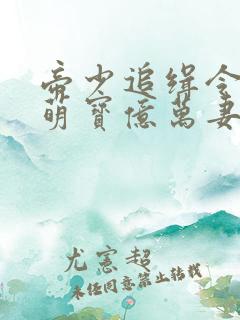 帝少追缉令
萌寳億萬妻
尤憲超
未经同意禁止转载